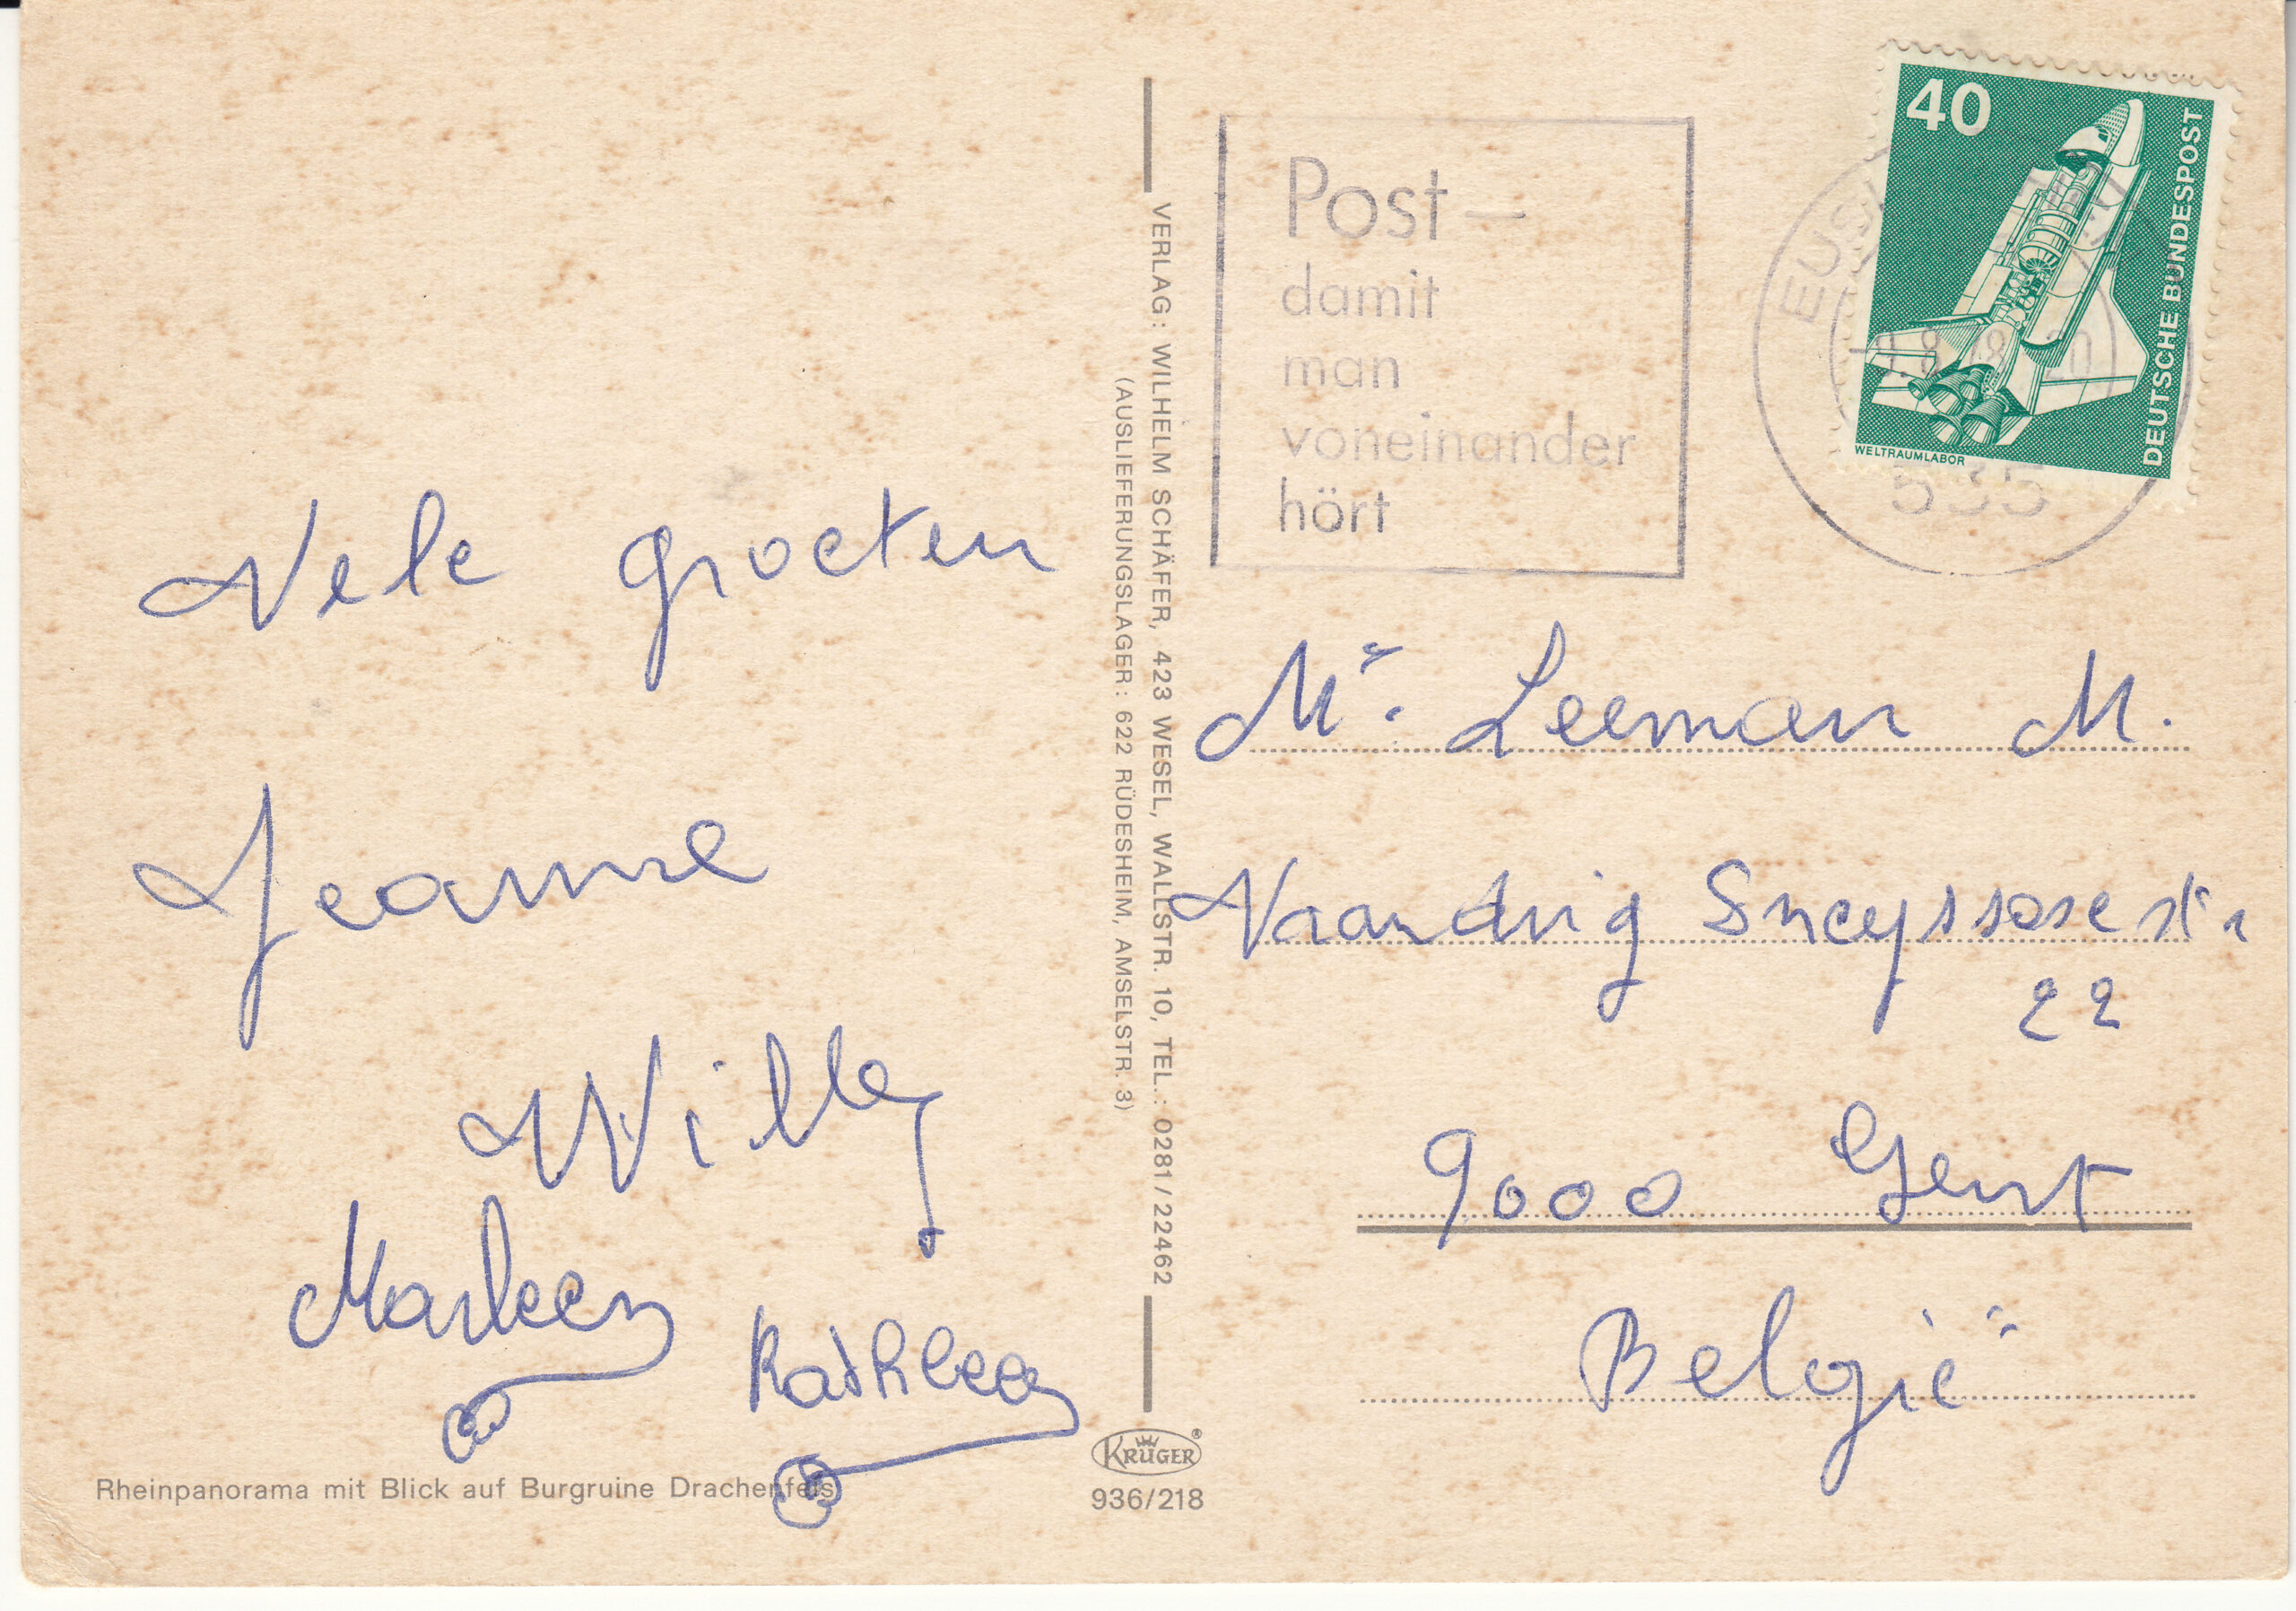 Vele groeten
Jeanne
Willy
Marleen
Kathleen
Rheinpanorama mit Blick auf Burgruine Drachenfels
VERLAG: WILHELM SCHÄFER, 423 WESEL, WALLSTR. 10, TEL.: 0281/22462
(AUSLIEFERUNGSLAGER: 622 RÜDESHEIM, AMSELSTR. 3)
KRÜGER®
936/218
Post –
damit
man
voneinander
hört
40
DEUTSCHE BUNDESPOST
WELTRAUMLABOR
535
Mr. Leeman M.
22
9000 Gent
België